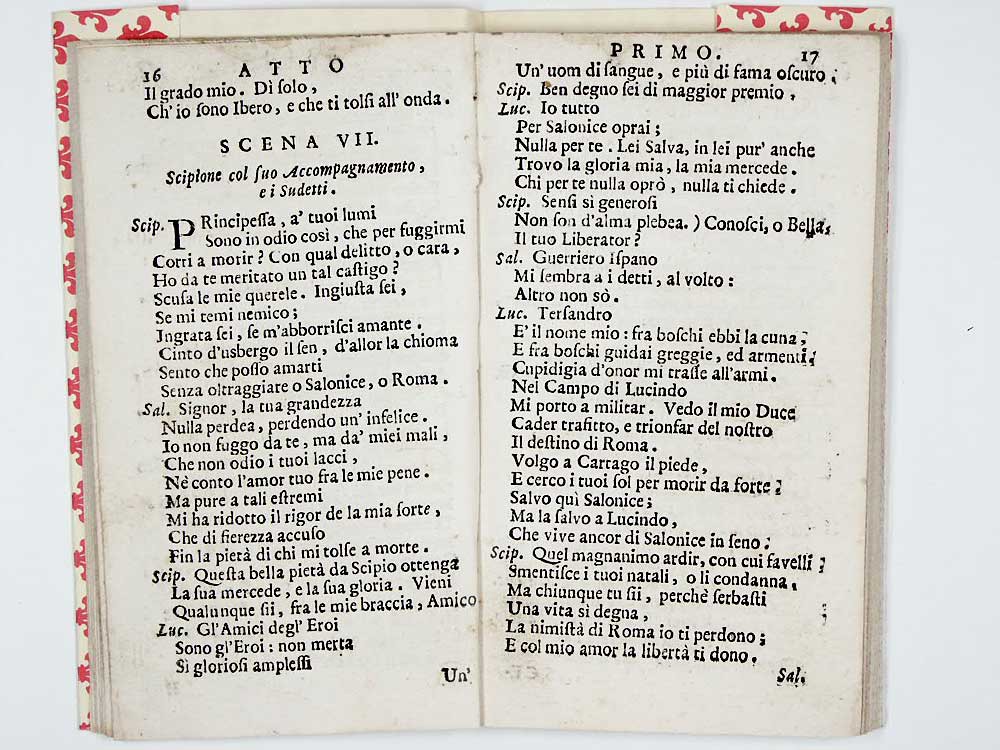 16 ATTO
Il grado mio. Dì solo,
Ch' io sono Ibero, e che ti tolsi all' onda.
SCENA VII.
Scipione col suo Accompagnamento,
e i Sudetti.
Scip. PRincipessa, a' tuoi lumi
Sono in odio così, che per fuggirmi
Corri a morir? Con qual delitto, o cara,
Ho da te meritato un tal castigo?
Scusa le mie querele. Ingiusta sei,
Se mi temi nemico;
Ingrata sei, se m'abborrisci amante.
Cinto d'usbergo il sen, d'allor la chioma
Sento che posso amarti
Senza oltraggiare o Salonice, o Roma.
Sal. Signor, la tua grandezza
Nulla perdea, perdendo un' infelice.
Io non fuggo da te, ma da' miei mali,
Che non odio i tuoi lacci,
Nè conto l'amor tuo fra le mie pene.
Ma pure a tali estremi
Mi ha ridotto il rigor de la mia sorte,
Che di fierezza accuso
Fin la pietà di chi mi tolse a morte.
Scip. Questa bella pietà da Scipio ottenga
La sua mercede, e la sua gloria. Vieni
Qualunque sii, fra le mie braccia, Amico
Luc. Gl'Amici degl' Eroi
Sono gl'Eroi: non merta
Sì gloriosi amplessi
Un'
PRIMO. 17
Un' uom di sangue, e più di fama oscuro.
Scip. Ben degno sei di maggior premio.
Luc. Io tutto
Per Salonice oprai;
Nulla per te. Lei Salva, in lei pur' anche
Trovo la gloria mia, la mia mercede.
Chi per te nulla oprò, nulla ti chiede.
Scip. Sensi sì generosi
Non son d'alma plebea.) Conosci, o Bella,
Il tuo Liberator?
Sal. Guerriero Ispano
Mi sembra a i detti, al volto:
Altro non sò.
Luc. Tersandro
E' il nome mio: fra boschi ebbi la cuna;
E fra boschi guidai greggie, ed armenti;
Cupidigia d'onor mi trasse all'armi.
Nel Campo di Lucindo
Mi porto a militar. Vedo il mio Duce
Cader trafitto, e trionfar del nostro
Il destino di Roma.
Volgo a Cartago il piede,
E cerco i tuoi sol per morir da forte;
Salvo quì Salonice;
Ma la salvo a Lucindo,
Che vive ancor di Salonice in seno.
Scip. Quel magnanimo ardir, con cui favelli;
Smentisce i tuoi natali, o li condanna.
Ma chiunque tu sii, perchè serbasti
Una vita sì degna,
La nimistà di Roma io ti perdono;
E col mio amor la libertà ti dono.
Sal.